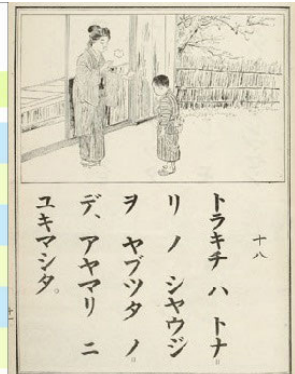 十八
トラキチ ハ トナ
リ ノ シヤウジ
ヲ ヤブツタ ノ
デ、アヤマリ ニ
ユキマシタ。